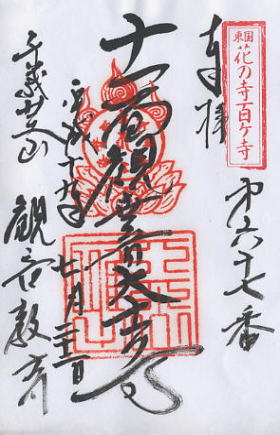 東国
花の寺百ヶ寺
第六十七番
奉拝
十一面観世音
平成十九年
七月二十二日
千葉芝山
観音教寺